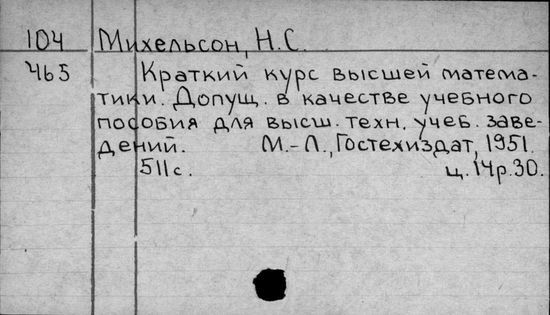 104 Михельсон, Н.С.
465 Краткий курс высшей матема-
тики. Допущ. в качестве учебного
пособия для высш. техн. учеб. заве-
дений. М.-Л., Гостехиздат, 1951.
511с. ц. 14р.30.